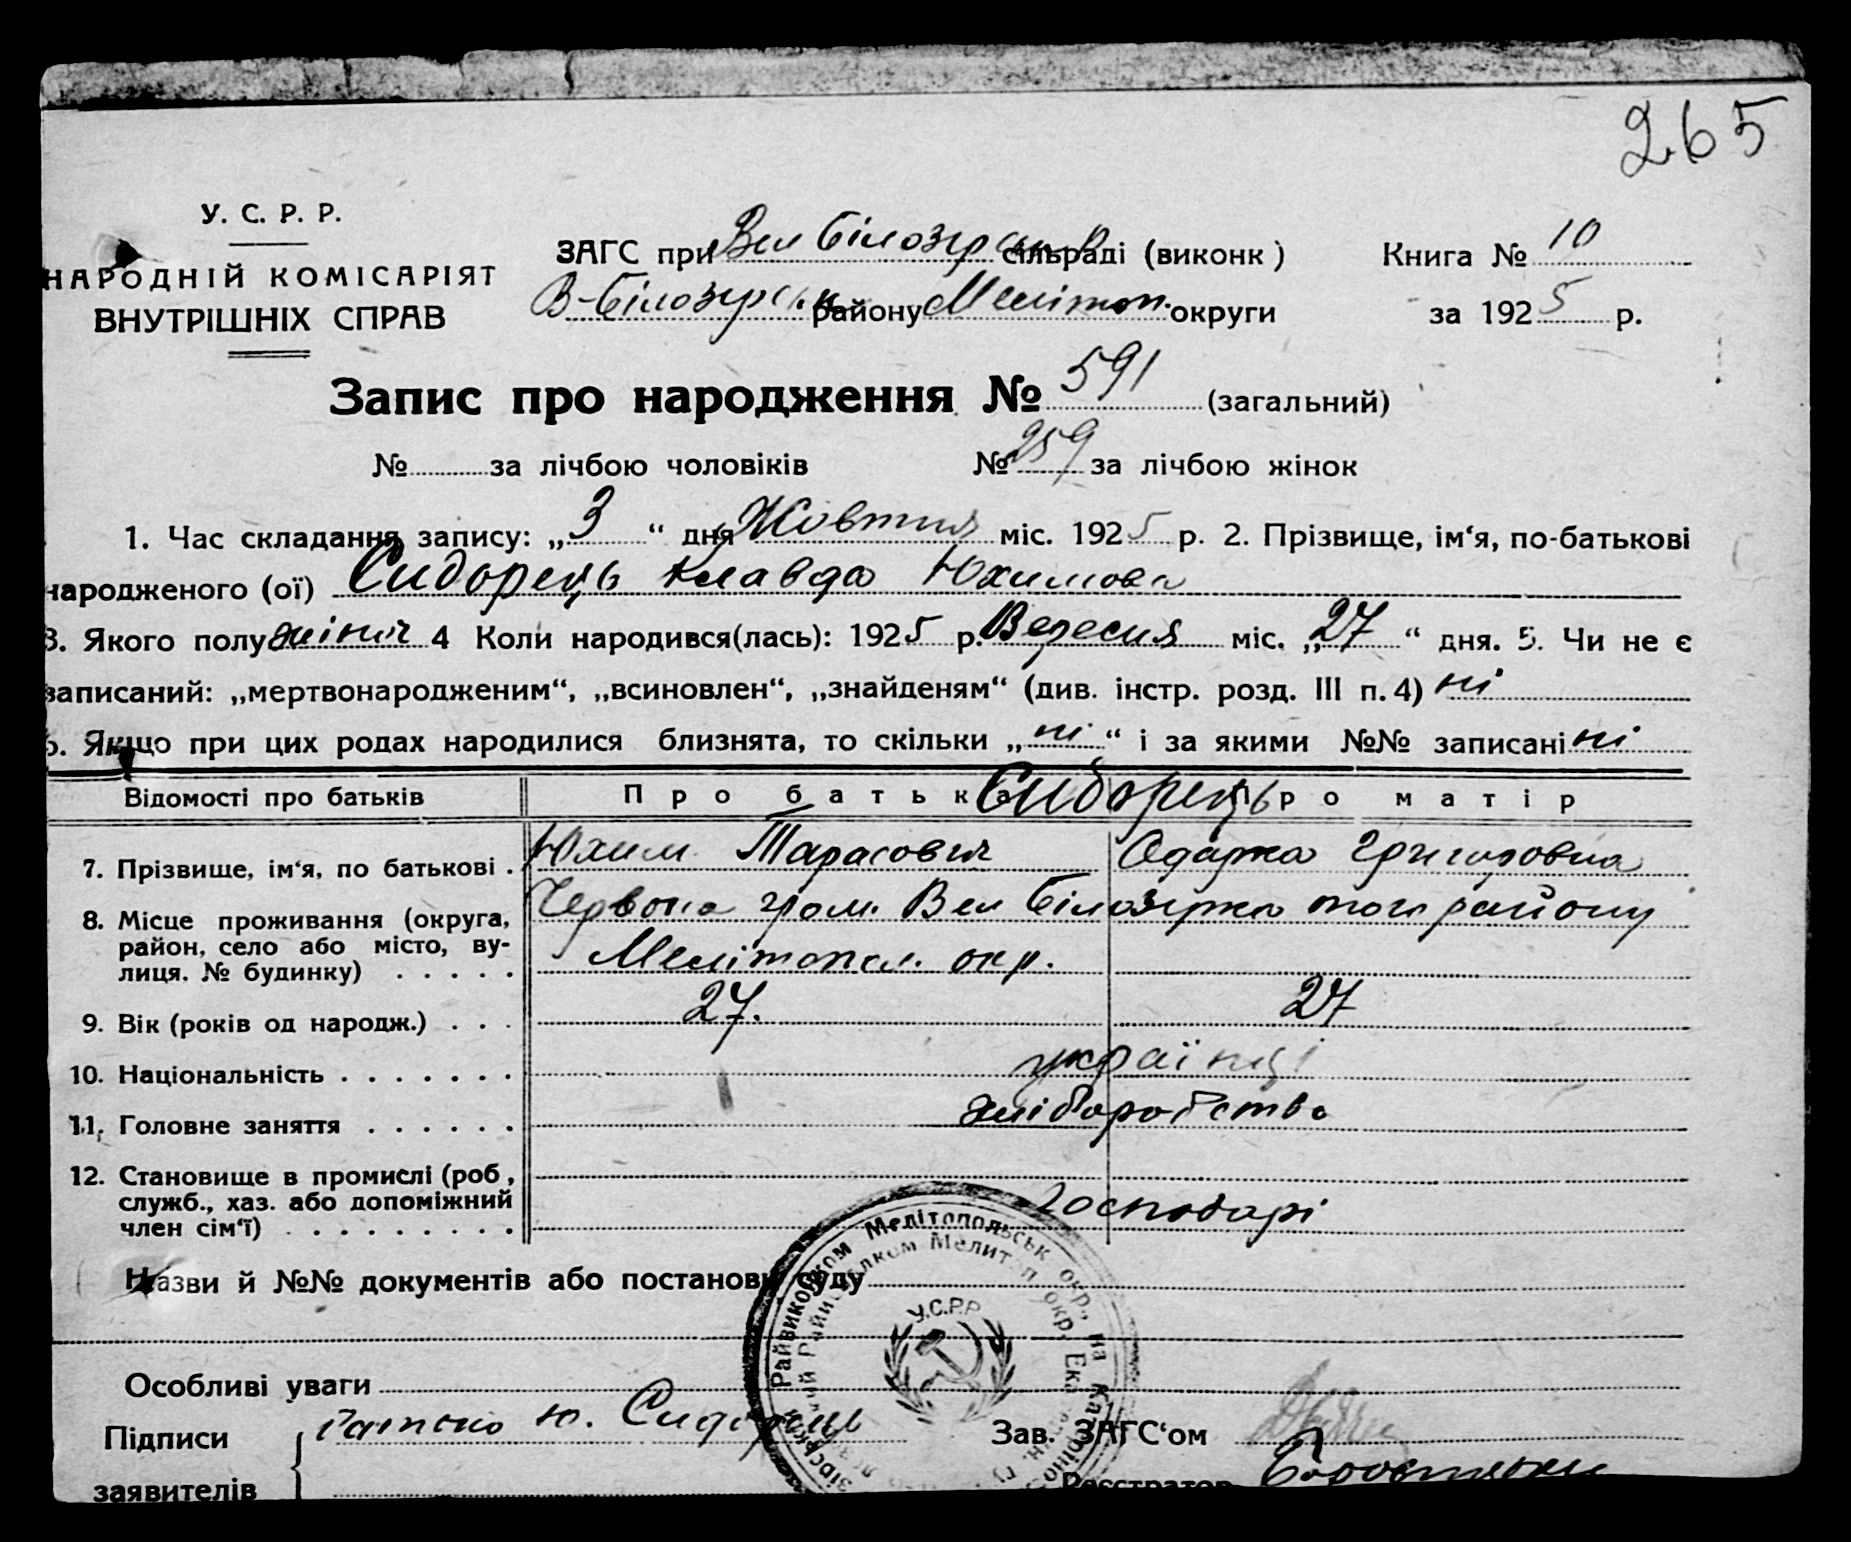 265
У. С. Р. Р.
НАРОДНІЙ КОМІСАРІЯТ
ВНУТРІШНІХ СПРАВ
ЗАГС при Вел Білозірськ сільраді (виконк)
В-Білозірськ. району Мелітоп. округи
Книга № 10
за 1925 р.
Запис про народження № 591 (загальний)
№ за лічбою чоловіків № 259 за лічбою жінок
1. Час складання запису: „3“ дня Жовтня міс. 1925 р. 2. Прізвище, ім‘я, по-батькові
народженого (ої) Сидорець Клавда Юхимова
3. Якого полу жіноч 4 Коли народився(лась): 1925 р. Вересня міс. „27“ дня. 5. Чи не є
записаний: „мертвонародженим“, „всиновлен“, „знайденям“ (див. інстр. розд. III п. 4) ні
6. Якщо при цих родах народилися близнята, то скільки „ні“ і за якими №№ записані ні
Відомості про батьків Про батька Сидорець Про матір
7. Прізвище, ім‘я, по батькові . Юхим Тарасович Одарка Григоровна
8. Місце проживання (округа, район, село або місто, ву-
лиця. № будинку) . . . . . Червона гром. Вел Білозірка того району
Мелітопол. окр.
9. Вік (років од народж.) . . . 27. 27
10. Національність . . . . . . . українці
11. Головне заняття . . . . . . хліборобство
12. Становище в промислі (роб,
служб., хаз. або допоміжний
член сім‘ї) . . . . . . . . . Господарі
Назви й №№ документів або постанови суду
Райвиконком Мелітопольськ окр., на Катеріно
У.С.Р.Р.
Особливі уваги
Підписи
заявителів
Батько Ю. Сидорець
Зав. ЗАГС‘ом
Реєстратор